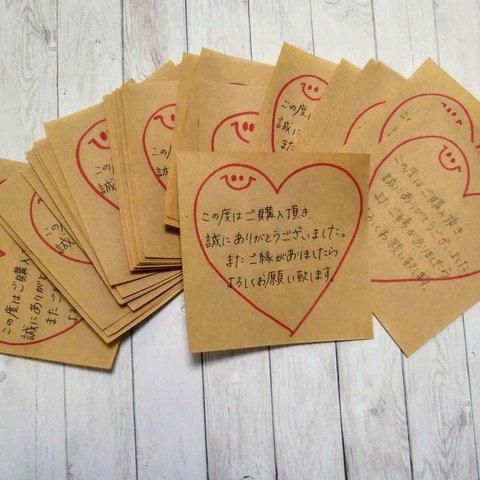 この度はご購入頂き、
誠にありがとうございました。
またご縁がありましたら
よろしくお願い致します。
この度はご購入頂き
誠にありがとうございました
またご縁がありましたら
よろしくお願い致します。
この度はご購入
誠にありがと
またご
よ
この
誠
この
誠に
この度
誠に
また